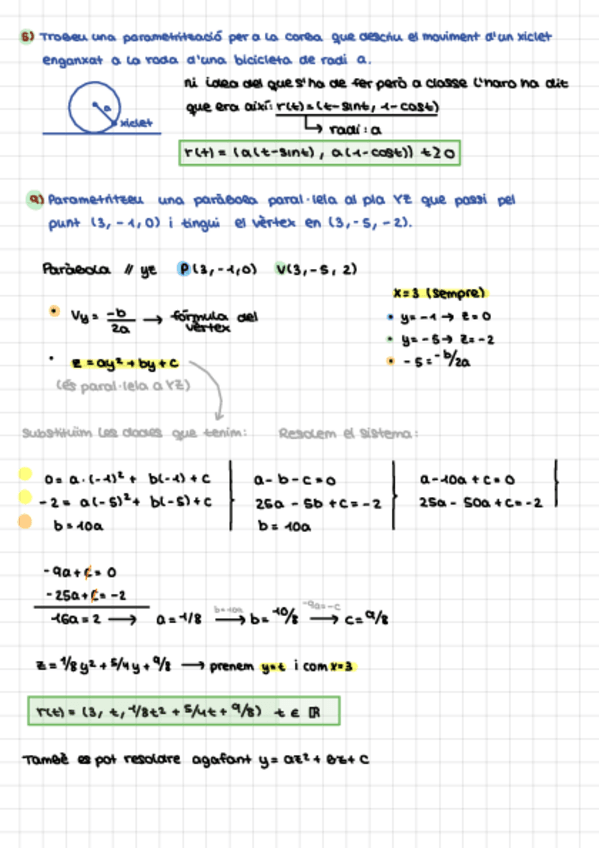 8) Trobeu una parametrització per a la corba que descriu el moviment d'un xiclet
enganxat a la roda d'una bicicleta de radi a.
ni idea del que s'ha de fer però a classe l'naro ha dit
que era així: r(t)=(t-sint, 1-cost)
a
xiclet
↳ radi: a
r(t) = (a(t-sint), a(1-cost)) t≥0
9) Parametritzeu una paràbola paral·lela al pla YZ que passi pel
punt (3, -1, 0) i tingui el vèrtex en (3, -5, -2).
Paràbola // yz P(3, -1, 0) V(3, -5, 2)
x=3 (sempre)
• Vy = -b/2a → fórmula del vèrtex
• y=-1 → z=0
• y=-5 → z=-2
• -5 = -b/2a
• z = ay² + by + c
(és paral·lela a YZ)
Substituïm les dades que tenim: Resolem el sistema:
0 = a·(-1)² + b(-1) + c
-2 = a(-5)² + b(-5) + c
b = 10a
a - b - c = 0
25a - 5b + c = -2
b = 10a
a - 10a + c = 0
25a - 50a + c = -2
-9a + c = 0
-25a + c = -2
-16a = 2 → a = -1/8 → b=10a b = -10/8 → -9a=-c c = 9/8
z = 1/8 y² + 5/4 y + 9/8 → prenem y=t i com x=3
r(t) = (3, t, -1/8t² + 5/4t + 9/8) t ∈ ℝ
També es pot resoldre agafant y = az² + bz + c